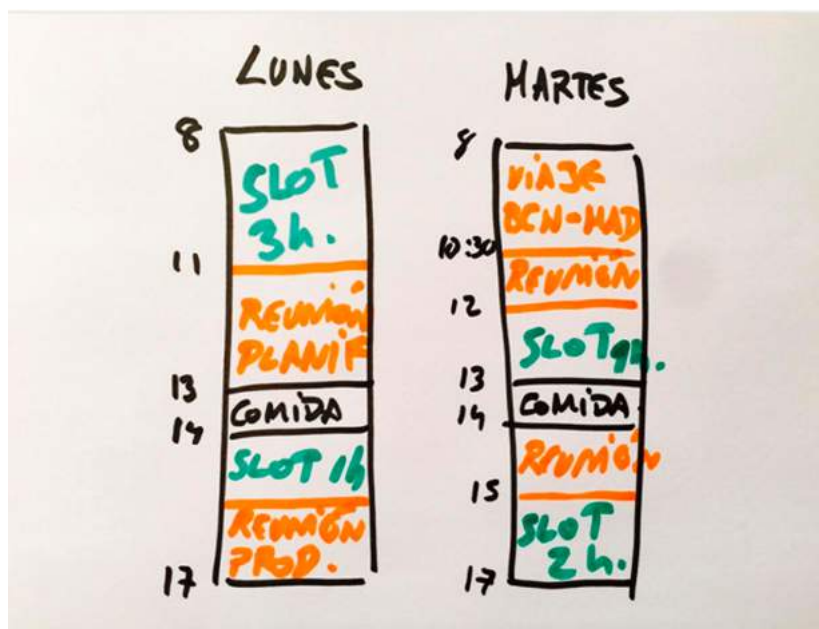 LUNES
8
SLOT
3h.
11
REUNIÓN
PLANIF
13
COMIDA
14
SLOT 1h
REUNIÓN
PROD.
17
MARTES
8
VIAJE
BCN-MAD
10:30
REUNIÓN
12
SLOT 1h.
13
COMIDA
14
REUNIÓN
15
SLOT
2h.
17